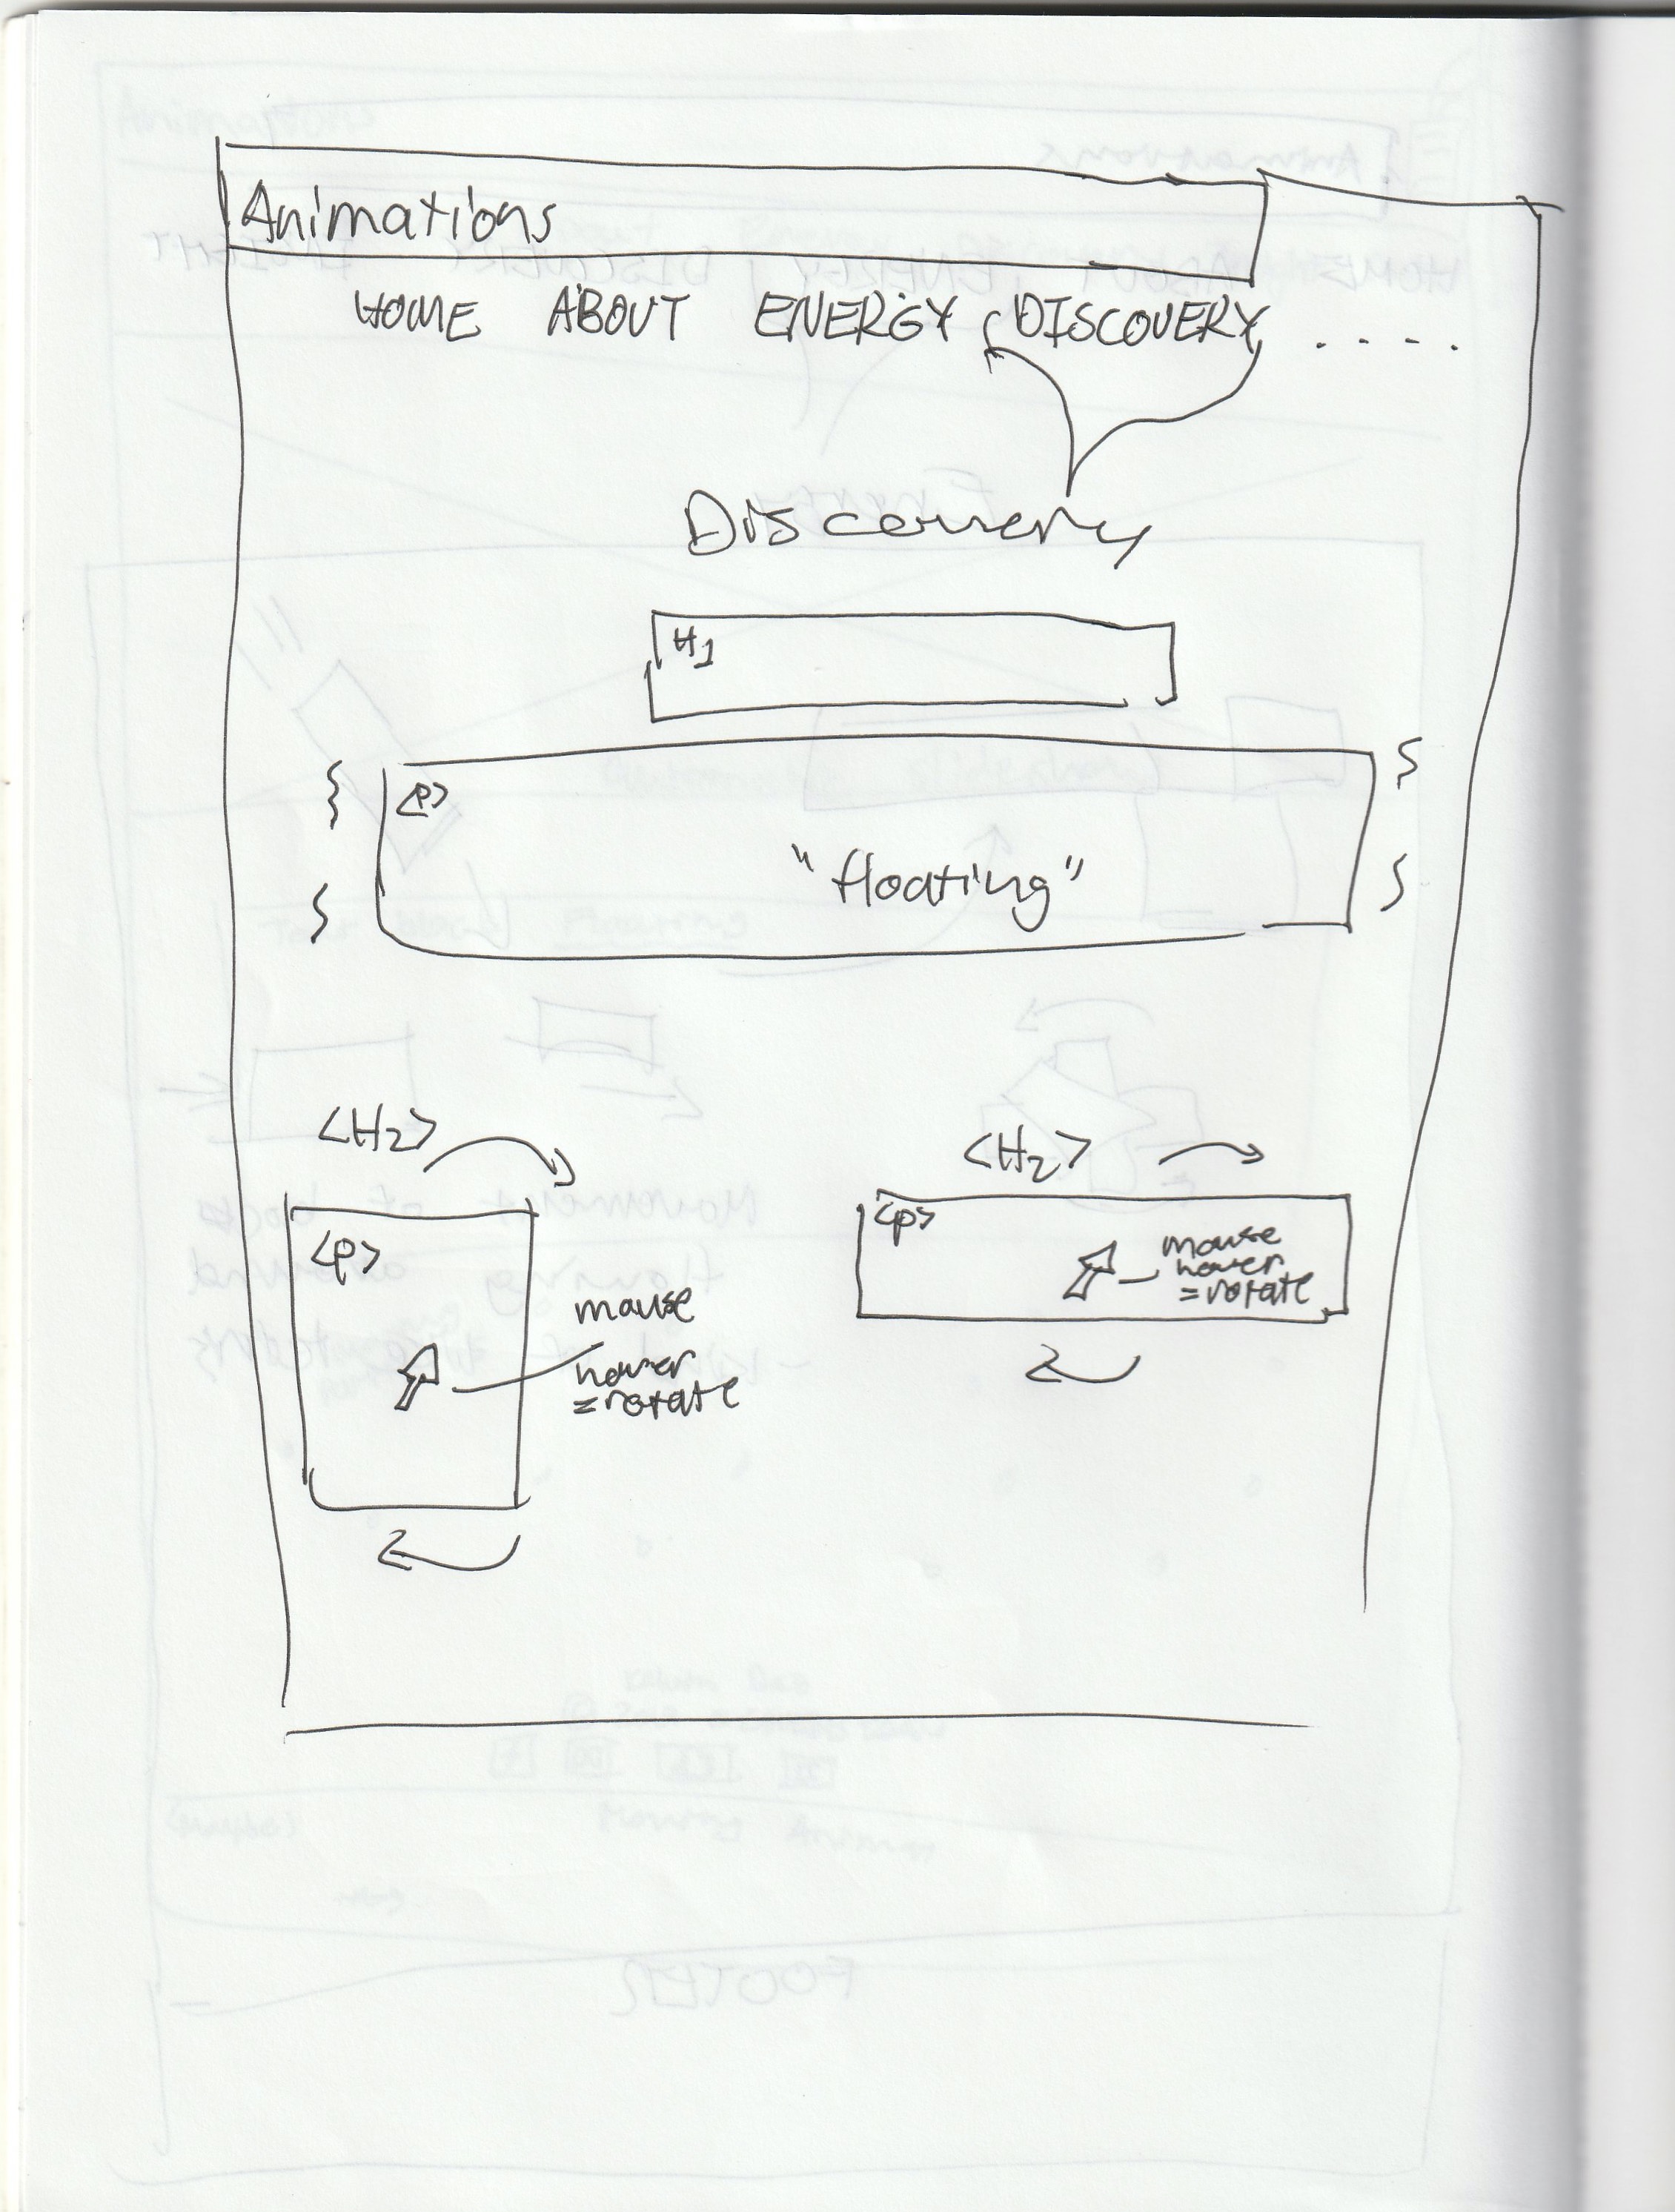 Animations
HOME ABOUT ENERGY DISCOVERY .....
Discovery
H1
<P>
"floating"
<H2>
<H2>
<P>
mouse
hover
=rotate
<p>
mouse
hover
=rotate